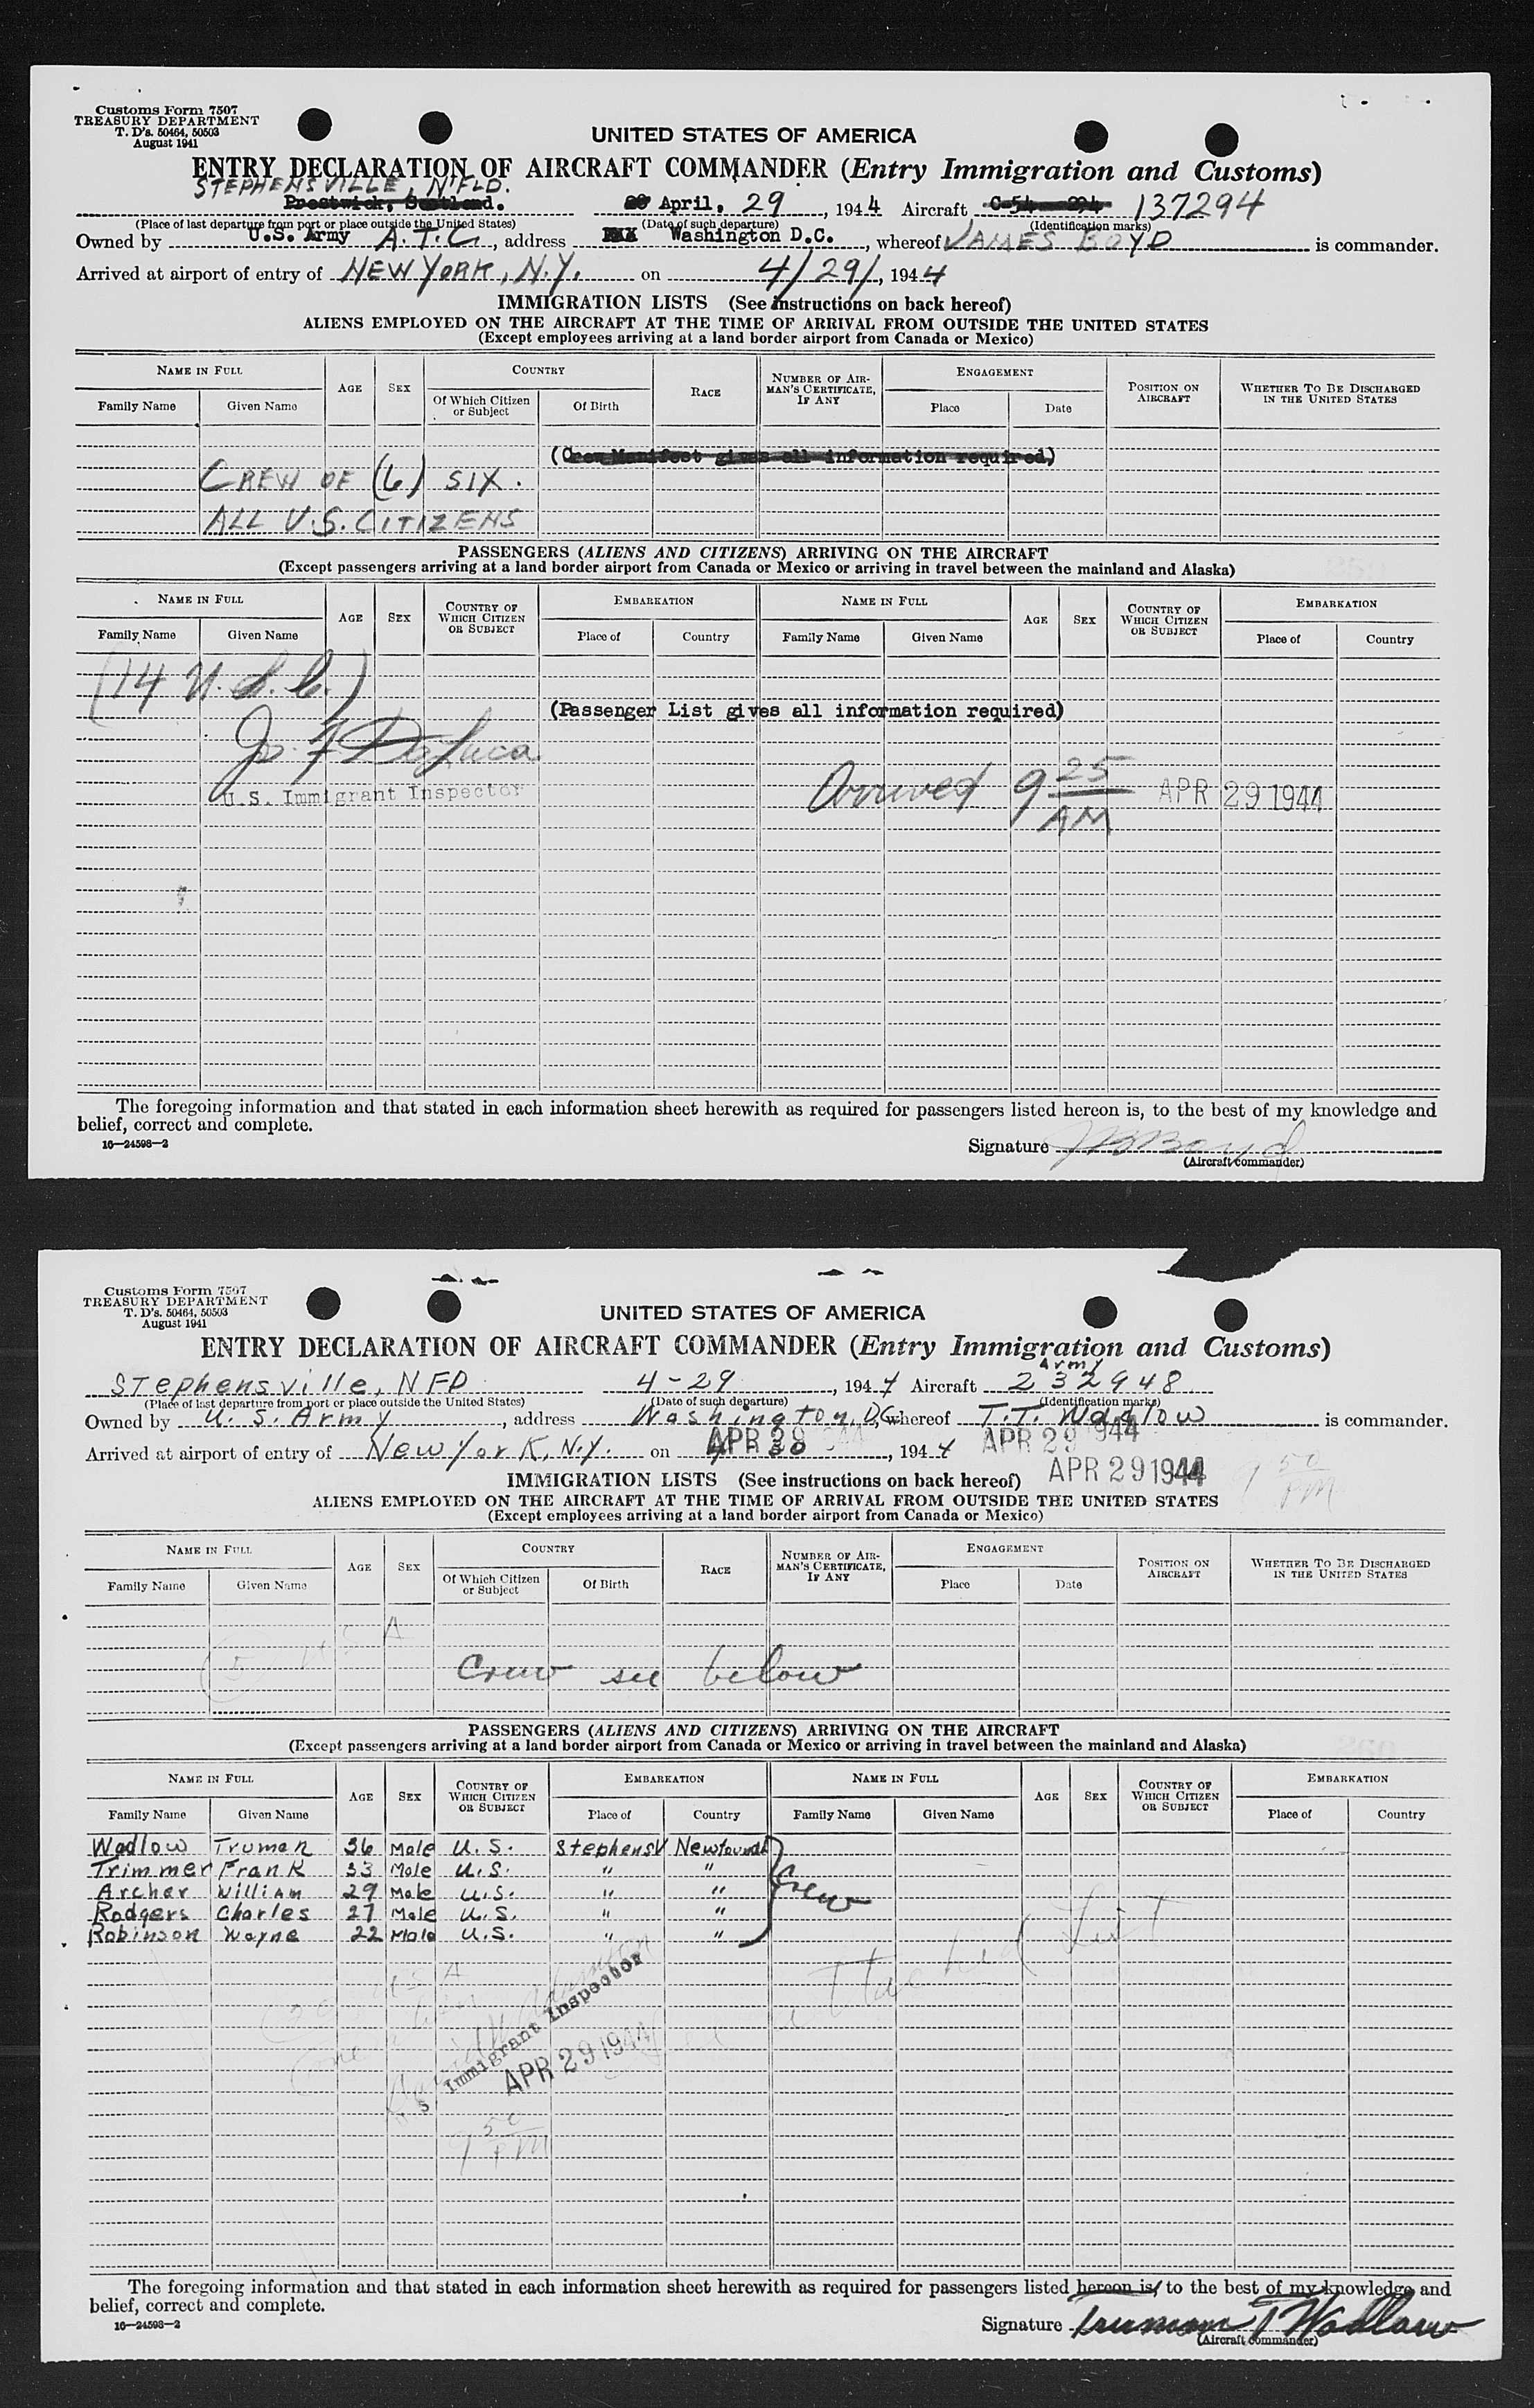 Customs Form 7507
TREASURY DEPARTMENT
T. D's. 50464, 50503
August 1941
UNITED STATES OF AMERICA
ENTRY DECLARATION OF AIRCRAFT COMMANDER (Entry Immigration and Customs)
STEPHENSVILLE, N'FLD.
Prestwick, Scotland. April, 29, 1944 Aircraft C-54 294 137294
(Place of last departure from port or place outside the United States) (Date of such departure) (Identification marks)
Owned by U.S. Army A.T.C., address Washington D.C., whereof JAMES BOYD is commander.
Arrived at airport of entry of NEW YORK, N.Y. on 4/29/, 1944
IMMIGRATION LISTS (See instructions on back hereof)
ALIENS EMPLOYED ON THE AIRCRAFT AT THE TIME OF ARRIVAL FROM OUTSIDE THE UNITED STATES
(Except employees arriving at a land border airport from Canada or Mexico)
NAME IN FULL AGE SEX COUNTRY RACE NUMBER OF AIRMAN'S CERTIFICATE, IF ANY ENGAGEMENT POSITION ON AIRCRAFT WHETHER TO BE DISCHARGED IN THE UNITED STATES
Family Name Given Name Of Which Citizen or Subject Of Birth Place Date
(Crew Manifest gives all information required)
CREW OF (6) SIX.
ALL U.S. CITIZENS
PASSENGERS (ALIENS AND CITIZENS) ARRIVING ON THE AIRCRAFT
(Except passengers arriving at a land border airport from Canada or Mexico or arriving in travel between the mainland and Alaska)
NAME IN FULL AGE SEX COUNTRY OF WHICH CITIZEN OR SUBJECT EMBARKATION NAME IN FULL AGE SEX COUNTRY OF WHICH CITIZEN OR SUBJECT EMBARKATION
Family Name Given Name Place of Country Family Name Given Name Place of Country
(14 U.S.C.)
(Passenger List gives all information required)
Jo. F DeLuca
U.S. Immigrant Inspector
Arrived 9 25 AM APR 29 1944
The foregoing information and that stated in each information sheet herewith as required for passengers listed hereon is, to the best of my knowledge and
belief, correct and complete.
16—24598—2
Signature JBBoyd
(Aircraft commander)
Customs Form 7507
TREASURY DEPARTMENT
T. D's. 50464, 50503
August 1941
UNITED STATES OF AMERICA
ENTRY DECLARATION OF AIRCRAFT COMMANDER (Entry Immigration and Customs)
Army
Stephensville, NFD 4-29, 1944 Aircraft 232948
(Place of last departure from port or place outside the United States) (Date of such departure) (Identification marks)
Owned by U.S. Army, address Washington, D.C. whereof T.T. Wadlow is commander.
Arrived at airport of entry of New York, N.Y. on 4 30 APR 29 1944, 1944 APR 29 1944
IMMIGRATION LISTS (See instructions on back hereof) APR 29 1944 9 50 PM
ALIENS EMPLOYED ON THE AIRCRAFT AT THE TIME OF ARRIVAL FROM OUTSIDE THE UNITED STATES
(Except employees arriving at a land border airport from Canada or Mexico)
NAME IN FULL AGE SEX COUNTRY RACE NUMBER OF AIRMAN'S CERTIFICATE, IF ANY ENGAGEMENT POSITION ON AIRCRAFT WHETHER TO BE DISCHARGED IN THE UNITED STATES
Family Name Given Name Of Which Citizen or Subject Of Birth Place Date
(5) USA
Crew see below
PASSENGERS (ALIENS AND CITIZENS) ARRIVING ON THE AIRCRAFT
(Except passengers arriving at a land border airport from Canada or Mexico or arriving in travel between the mainland and Alaska)
NAME IN FULL AGE SEX COUNTRY OF WHICH CITIZEN OR SUBJECT EMBARKATION NAME IN FULL AGE SEX COUNTRY OF WHICH CITIZEN OR SUBJECT EMBARKATION
Family Name Given Name Place of Country Family Name Given Name Place of Country
Wadlow Truman 36 Male U.S. StephensV Newfoundl
Trimmer Frank 33 Male U.S. " "
Archer William 29 Male U.S. " " Crew
Rodgers Charles 27 Male U.S. " "
Robinson Wayne 22 Male U.S. " "
attached List
USA
U.S. Immigrant Inspector
APR 29 1944
9 50 PM
The foregoing information and that stated in each information sheet herewith as required for passengers listed hereon is, to the best of my knowledge and
belief, correct and complete.
16—24598—2
Signature Truman T Wadlow
(Aircraft commander)